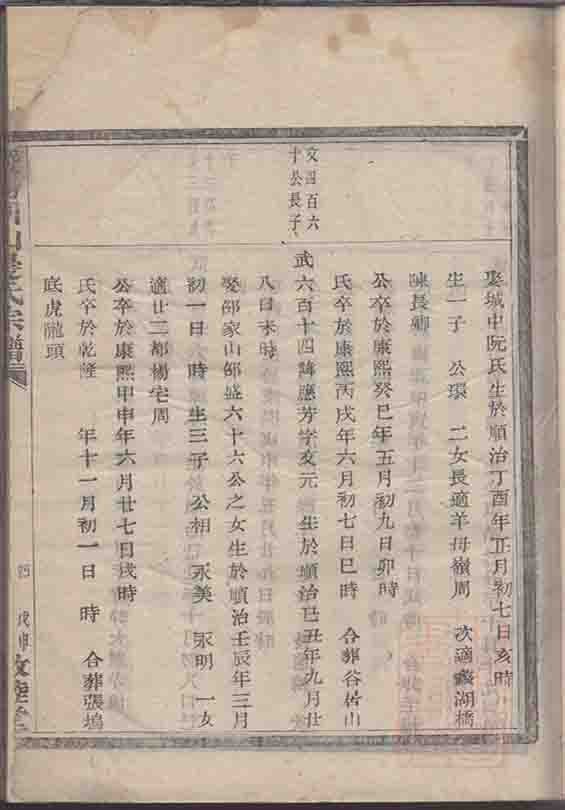 娶城中阮氏生於順治丁酉年正月初七日亥時
生一子 公環 二女長適羊毋嶺周 次適蠡湖橋
陳長卿
公卒於康熙癸巳年五月初九日卯時
氏卒於康熙丙戌年六月初七日巳時 合葬谷居山
文四百六
十公長子
武六百十四諱應芳字文元 生於順治己丑年九月廿
八日未時
娶邵家山邵盛六十六公之女生於順治壬辰年三月
初一日 時生三子 公相 永美 永明 一女
適廿二都楊宅周
公卒於康熙甲申年六月廿七日戌時
氏卒於乾隆 年十一月初一日 時 合葬張塢
底虎龍頭
山 氏宗譜
戊申敦睦堂